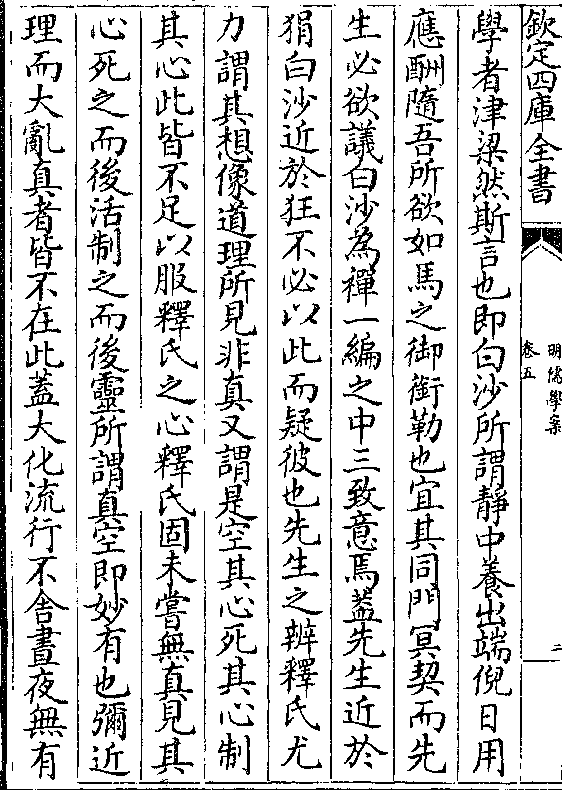 欽定四庫全書
明儒學案
卷五
二
學者津梁然斯言也即白沙所謂靜中養出端倪日用
應酬隨吾所欲如馬之御銜勒也宜其同門冥契而先
生必欲議白沙為禪一編之中三致意焉蓋先生近於
狷白沙近於狂不必以此而疑彼也先生之辨釋氏尤
力謂其想像道理所見非真又謂是空其心死其心制
其心此皆不足以服釋氏之心釋氏固未嘗無真見其
心死之而後活制之而後靈所謂真空即妙有也彌近
理而大亂真者皆不在此蓋大化流行不舍晝夜無有